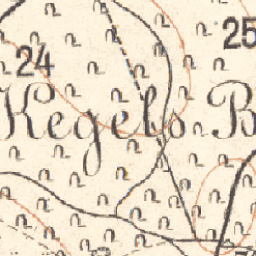 25
24
Kegels B